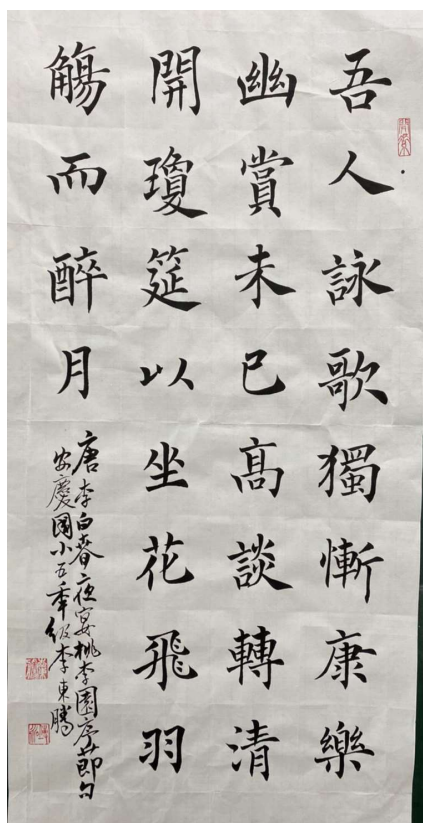 吾人詠歌獨慚康樂
幽賞未已高談轉清
開瓊筵以坐花飛羽
觴而醉月
唐李白春夜宴桃李園序節句
安慶國小五年級李東騰